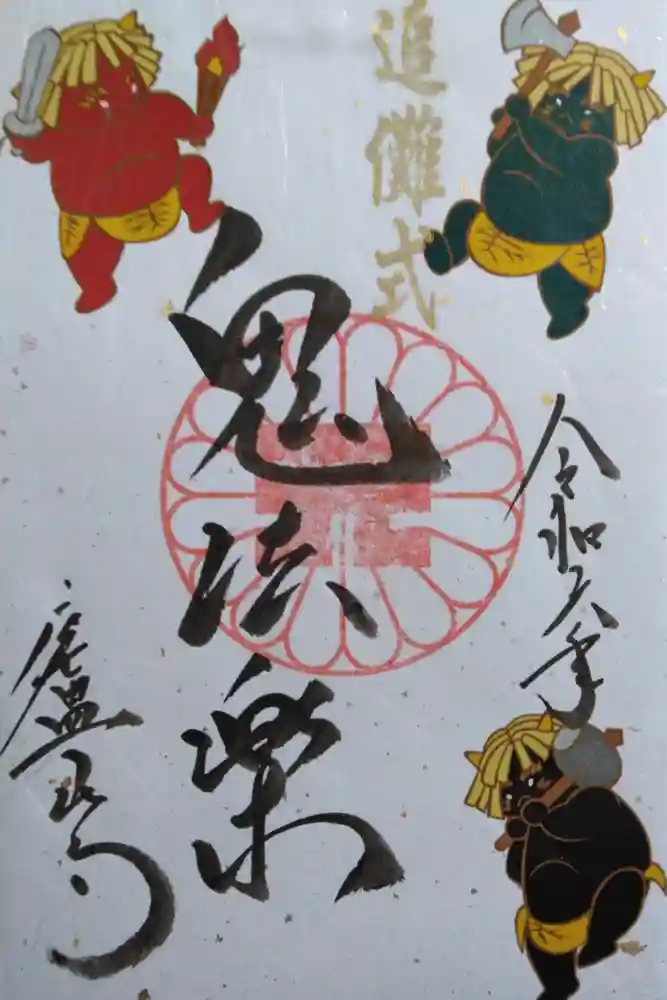 令和六年
追儺式
鬼法楽
廬山寺